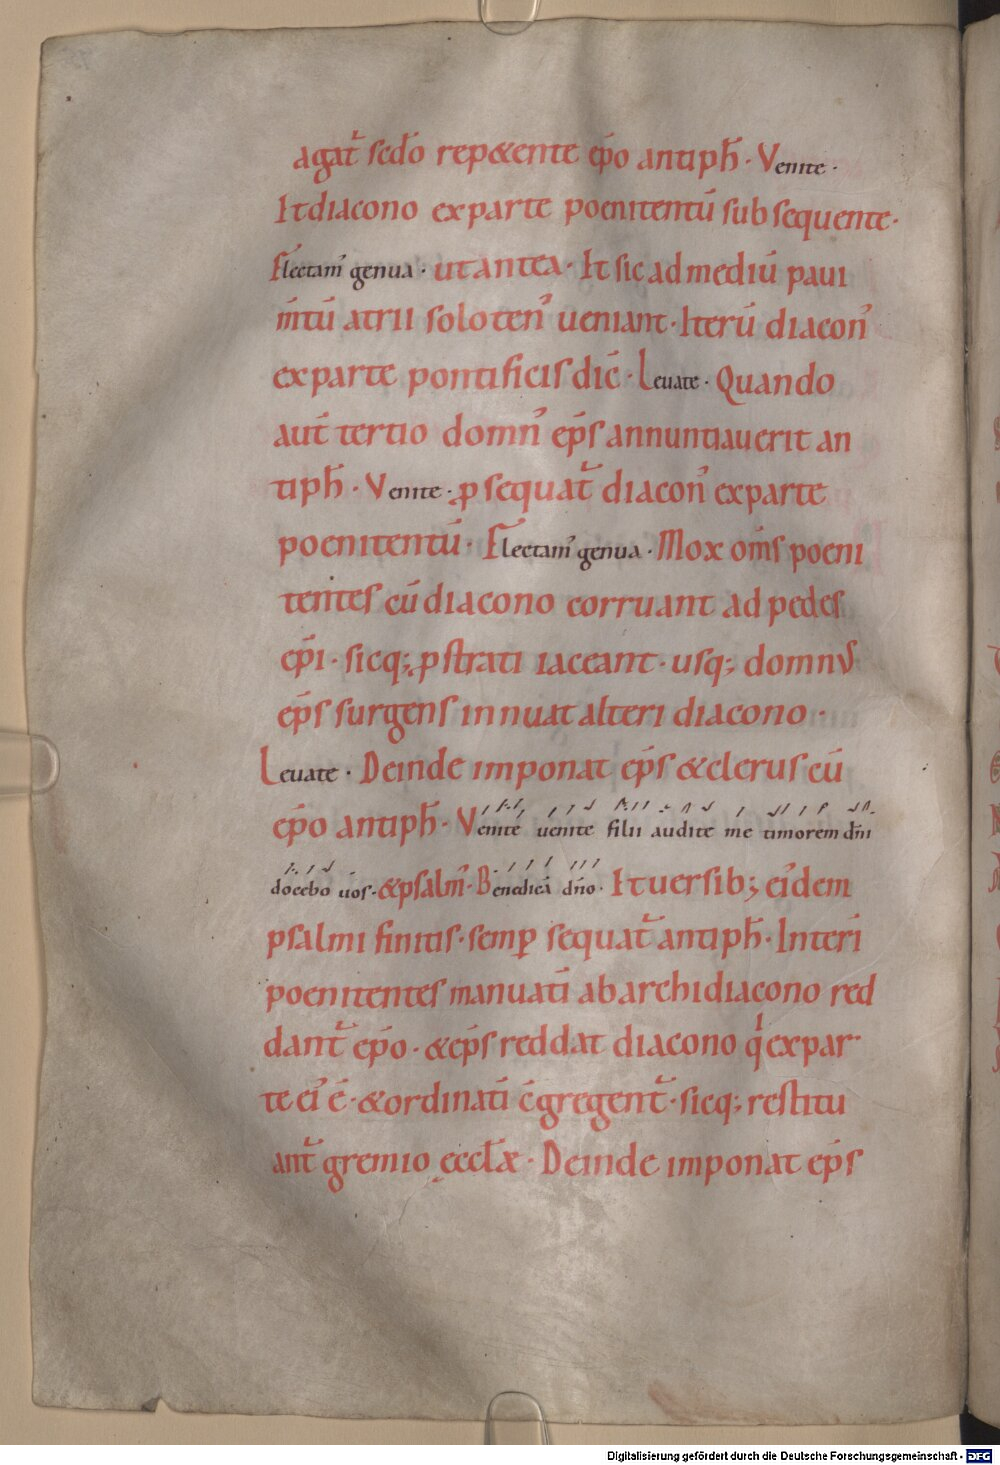 agat̃ sedo repetente ep̄o antiph̄· Venite·
It diacono ex parte poenitentū subsequente·
Flectam' genua· ut antea· It sic ad mediū paui
m̄tū atrii soloten' ueniant· Iterū diacon'
ex parte pontificis dic̄· Leuate· Quando
aut̄ tertio domn' ep̄s annuntiauerit an
tiph̄· Venite· ꝓsequat̃ diacon' ex parte
poenitentū· Flectam' genua· Mox om̄s poeni
tentes cū diacono corruant ad pedes
ep̄i· sicq; ꝓstrati iaceant· usq; domnus
ep̄s surgens innuat alteri diacono·
Leuate· Deinde imponat ep̄s & clerus cū
ep̄o antiph̄· Venite uenite filii audite me timorem dn̄i
docebo uos· & psalm̄· Benedicā dn̄o· It uersib; ei'dem
psalmi finitis· semꝑ sequat̃ antiph̄· Interī
poenitentes manuatī ab archidiacono red
dant̃ ep̄o· & ep̄s reddat diacono qi ex par
te ei' ē· & ordinatī c̄gregent̃· sicq; restitu
ant̃ gremio ęccl̄æ· Deinde imponat ep̄s
Digitalisierung gefördert durch die Deutsche Forschungsgemeinschaft - DFG